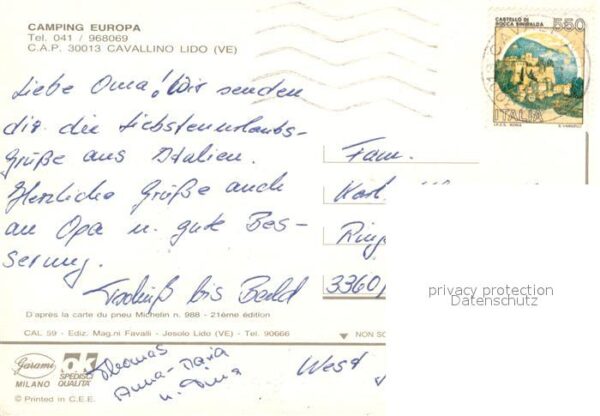 CAMPING EUROPA
Tel. 041 / 968069
C.A.P. 30013 CAVALLINO LIDO (VE)
CASTELLO DI
ROCCA SINIBALDA
550
ITALIA
I.P.Z.S. ROMA
Liebe Oma! Wir senden
dir die liebsten Urlaubs-
grüße aus Italien.
Herzliche Grüße auch
an Opa u. gute Bes-
serung.
Tschüß bis Bald
Fam.
Karl
Ring
3360
West
privacy protection
Datenschutz
D'après la carte du pneu Michelin n. 988 - 21ème édition
CAL 59 - Ediz. Mag.ni Favalli - Jesolo Lido (VE) - Tel. 90666
NON SC
Garami
MILANO
ok
SPEDISCI
QUALITÀ
© Printed in C.E.E.
Thomas
u.